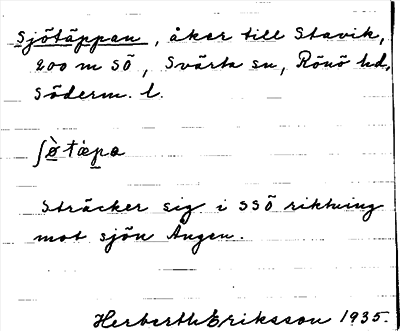 Sjötäppan, åker till Stavik,
200 m SÖ, Svärta sn, Rönö hd,
Söderm. l.
ʃø̀tápa
Sträcker sig i SSÖ riktning
mot sjön Ången.
Herberth Eriksson 1935.